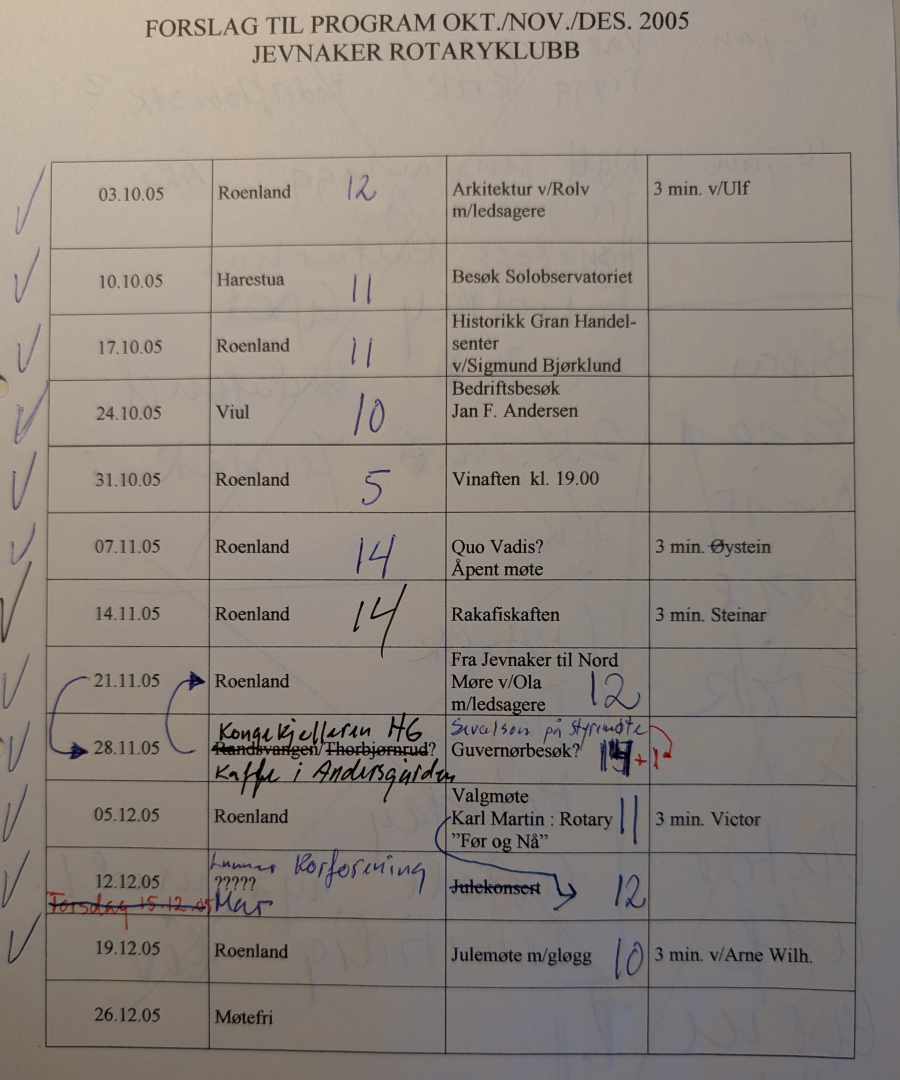 FORSLAG TIL PROGRAM OKT./NOV./DES. 2005
JEVNAKER ROTARYKLUBB
03.10.05 Roenland 12 Arkitektur v/Rolv 3 min. v/Ulf
m/ledsagere
10.10.05 Harestua 11 Besøk Solobservatoriet
17.10.05 Roenland 11 Historikk Gran Handel-
senter
v/Sigmund Bjørklund
24.10.05 Viul 10 Bedriftsbesøk
Jan F. Andersen
31.10.05 Roenland 5 Vinaften kl. 19.00
07.11.05 Roenland 14 Quo Vadis? 3 min. Øystein
Åpent møte
14.11.05 Roenland 14 Rakafiskaften 3 min. Steinar
21.11.05 Roenland Fra Jevnaker til Nord
Møre v/Ola 12
m/ledsagere
Kongekjelleren HG på styremøte
28.11.05 Randsvangen/Thorbjørnrud? Guvernørbesøk? +1
Kaffe i Andersgården
05.12.05 Roenland Valgmøte 11 3 min. Victor
Karl Martin : Rotary
"Før og Nå"
Korforening
12.12.05 ????? Julekonsert 12
Torsdag 15.12.05 Mar
19.12.05 Roenland Julemøte m/gløgg 10 3 min. v/Arne Wilh.
26.12.05 Møtefri